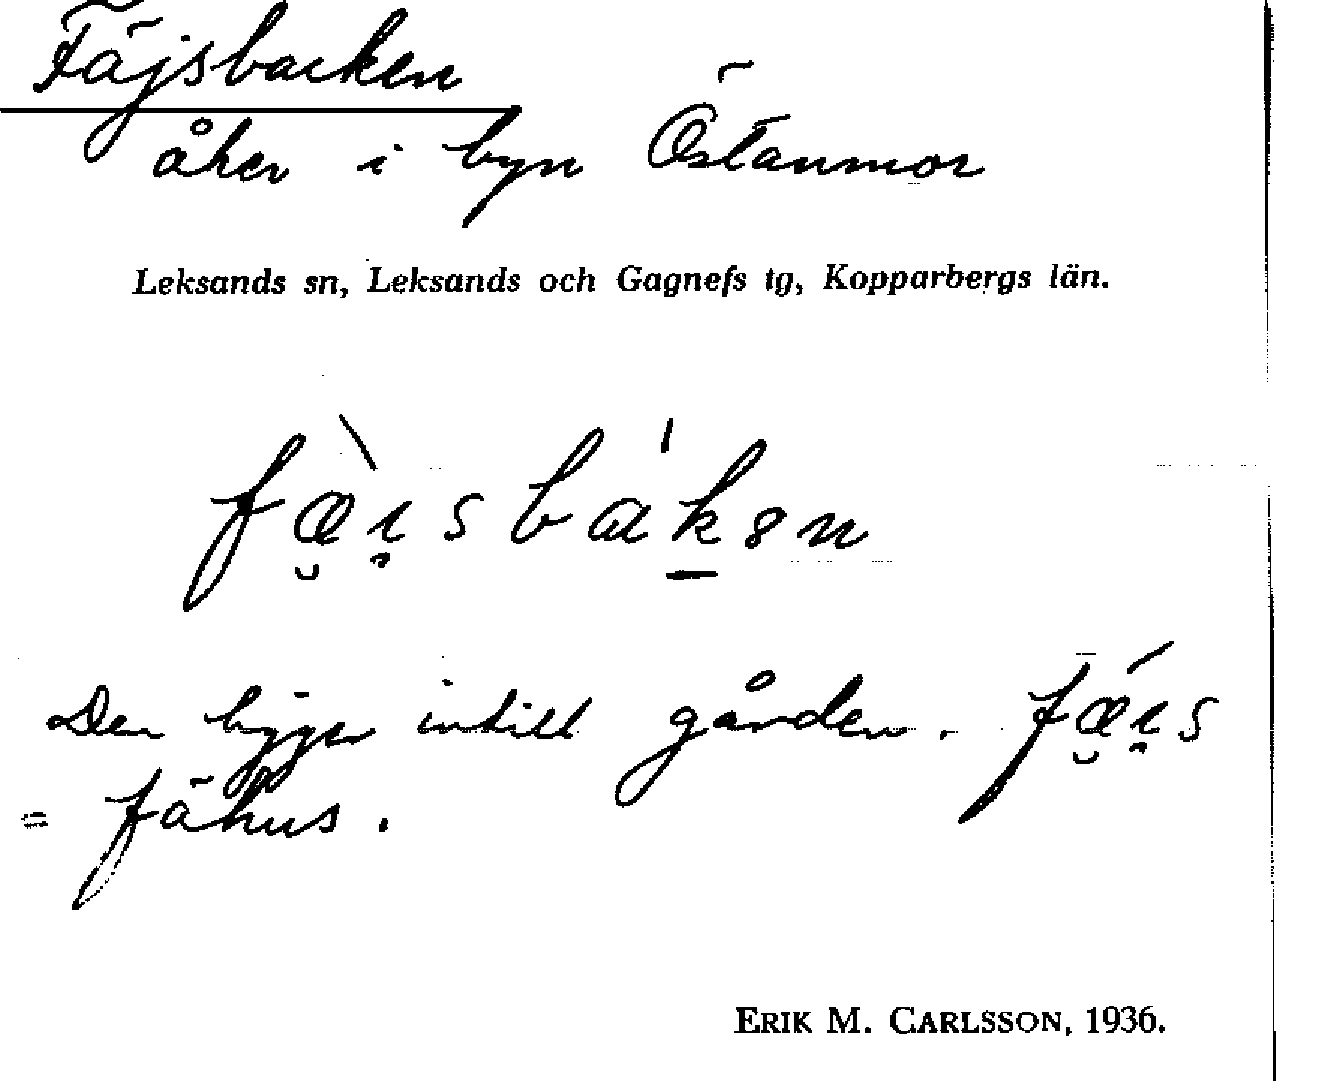 Fäjsbacken
åker i byn Östanmor
Leksands sn, Leksands och Gagnefs tg, Kopparbergs län.
fæ̀ɪsbɑ́k̲ən
Den ligger intill gården. fǽ̮ɪ̯s
= fähus.
ERIK M. CARLSSON, 1936.